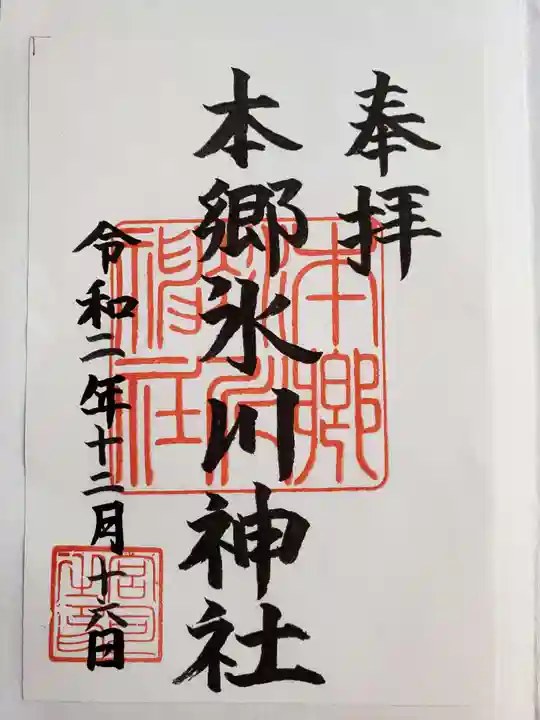 奉拝
本郷氷川神社
令和二年十二月十六日
本郷氷川神社
宮司之印